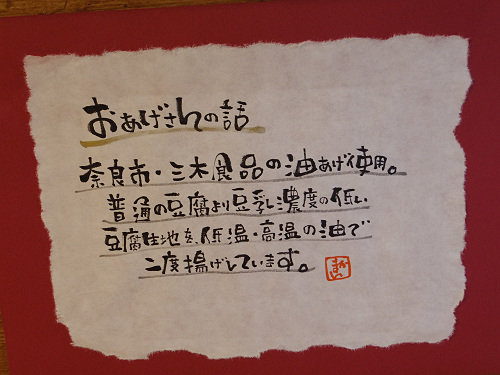 おあげさんの話
奈良市・三木食品の油あげ使用。
普通の豆腐より豆乳濃度の低い
豆腐生地を、低温・高温の油で
二度揚げしています。